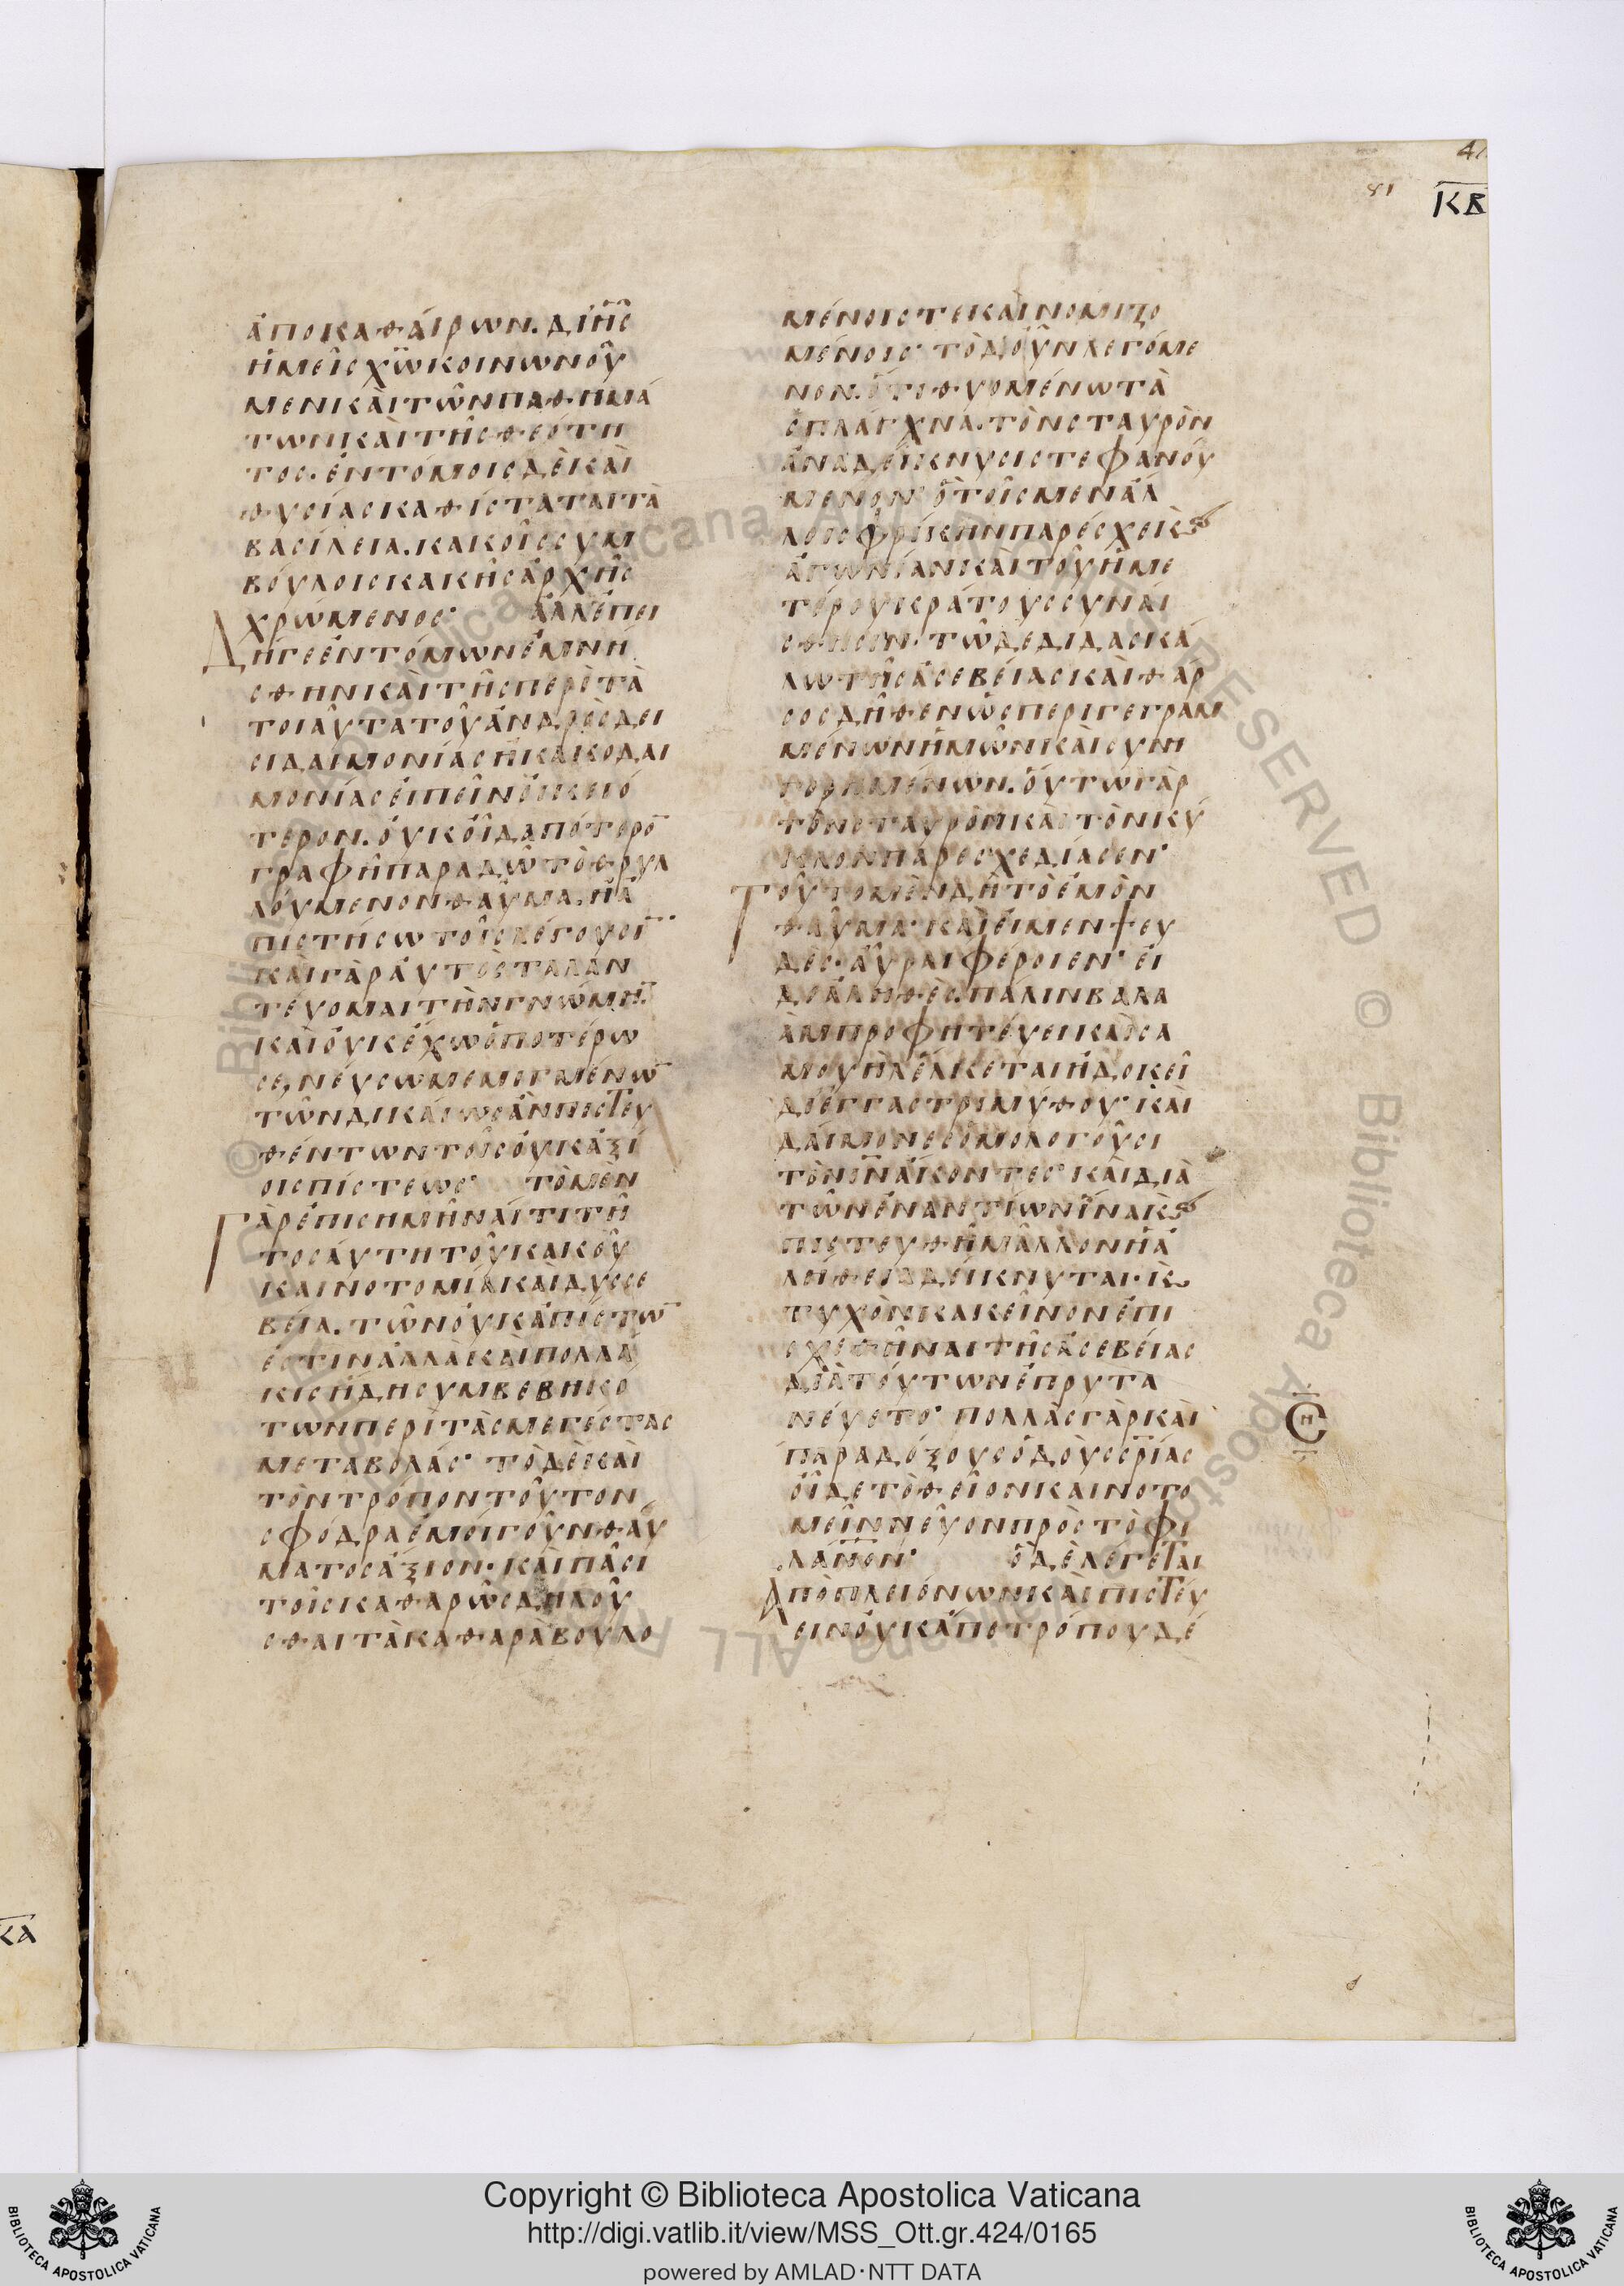 47
81
ΚΒ
ἀποκαθαίρων. δι ἧς
ἡμεῖς χ̅ω κοινωνοῦ
μεν καὶ τῶν παθημά
των καὶ τῆς θεότη
τος· ἐντόμοις δὲ καὶ
θυσίαις καθίσταται τὰ
βασίλεια. κακοῖς συμ
βούλοις κακῆς ἀρχῆς
χρώμενος· ἀλλ ἐπει
Δήγε ἐντόμων ἐμνή
σθην καὶ τῆς περὶ τὰ
τοιαῦτα τοῦ ἀνδρὸς δει
σιδαιμονίας ἢ κακοδαι
μονίας εἰπεῖν οἰκειό
τερον. οὐκ οἶδα πότερο̅
γραφῇ παραδῶ τὸ θρυλ
λούμενον θαῦμα. ἢ ἀ
πιστήσω τοῖς λέγουσι̅
καὶ γὰρ αὐτὸς ταλαν
τεύομαι τὴν γνώμη̅.
καὶ οὐκ ἔχω ὁποτέρω
σε, νεύσω μεμιγμένω̅
τῶν δικαίως ἂν πιστευ
θέντων τοῖς οὐκ ἀξί
οις πίστεως· τὸ μὲν
Γὰρ ἐπισημῆναί τι τῆ
τοσαύτη τοῦ κακοῦ
καινοτομία καὶ δυσσε
βεία. τῶν οὐκ ἀπίστω̅
ἐστιν ἀλλὰ καὶ πολλά
κις ἤδη συμβεβηκό
των περὶ τὰς μεγίστας
μεταβολάς· τὸ δὲ καὶ
τὸν τρόπον τοῦτον
σφόδρα ἐμοὶ γοῦν θαύ
ματος ἄξιον· καὶ πᾶσι
τοῖς καθαρῶς δηλοῦ
σθαι τὰ καθαρὰ βουλο
μένοις τε καὶ νομιζο
μένοις· τὸ δ οὖν λεγόμε
νον. ὅτι θυομένω τὰ
σπλάγχνα. τὸν σταυρὸν
ἀναδείκνυσι στεφανού
μενον· ὃ τοῖς μεν ἄλ
λοις φρίκην παρέσχε κ̀
ἀγωνίαν καὶ τοῦ ἡμε
τέρου κράτους συναί
σθησιν. τῶ δε διδασκά
λω τῆς ἀσεβείας καὶ θάρ
σος δῆθεν ὡς περιγεγραμ
μένων ἡμῶν καὶ συνη
γορημένων. οὕτω γὰρ
τὸν σταυρὸν καὶ τὸν κύ
κλον παρεσχεδίασεν·
Τοῦτο μὲν δὴ τὸ ἐμὸν
θαῦμα· καὶ εἰ μεν ψευ
δές· αὖραι φέροιεν· εἰ
δ ἀληθὲς. πάλιν βαλα
ὰμ προφητεύει καὶ σα
μουὴλ ἕλκεται ἢ δοκεῖ
δι ἐγγαστριμύθου· καὶ
δαίμονες ὁμολογοῦσι
τὸν ι̅ν̅ ἄκοντες· καὶ διὰ
τῶν ἐναντίων ἵνα κ̀
πιστευθῆ μᾶλλον ἡ ἀ
λήθεια δείκνυται· κ̀
τυχὸν κακεῖνον ἐπι
σχεθῆναι τῆς ἀσεβείας
διὰ τούτων ἐπρυτα
νεύετο· πολλὰς γὰρ καὶ
παραδόξους ὁδοὺς σ̅ρ̅ίας
οἶδε τὸ θεῖον καινοτο
μεῖν νεῦον πρὸς τὸ φι
λά̅ν̅ο̅ν· ὃ δὲ λέγεται
Ἀπὸ πλειόνων καὶ πιστεύ
ειν οὐκ ἄπο τρόπου δέ
ΚΑ
© Biblioteca Apostolica Vaticana ALL RIGHTS RESERVED
Copyright © Biblioteca Apostolica Vaticana
http://digi.vatlib.it/view/MSS_Ott.gr.424/0165
powered by AMLAD·NTT DATA
BIBLIOTECA APOSTOLICA VATICANA
BIBLIOTECA APOSTOLICA VATICANA